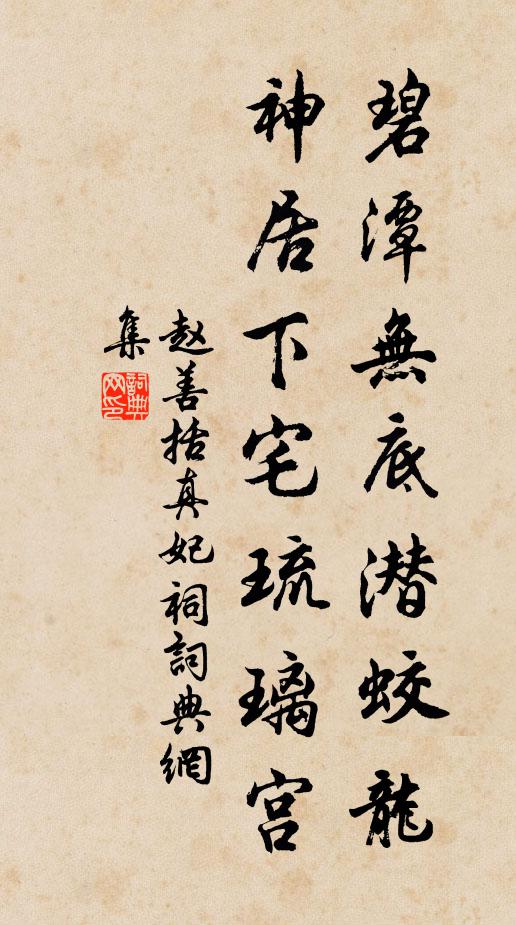 碧潭無底潜蛟龍
神居下宅琉璃宫
赵善括真妃祠詞典網
集
詞典
网印